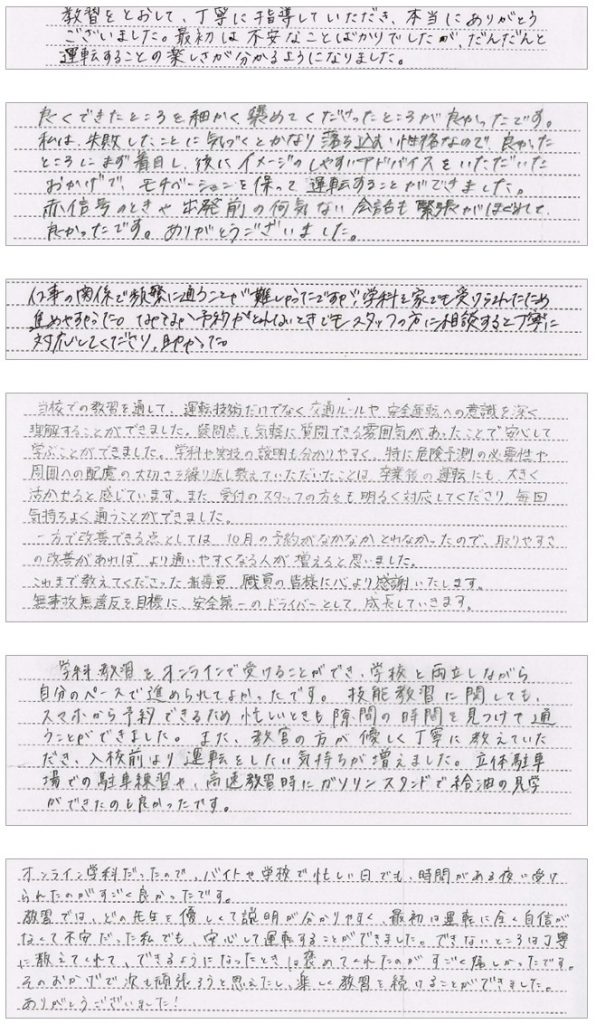 教習をとおして、丁寧に指導していただき、本当にありがとう
ございました。最初は不安なことばかりでしたが、だんだんと
運転することの楽しさが分かるようになりました。
良くできたところを細かく褒めてくださったところが良かったです。
私は、失敗したことに気づくとかなり落ち込む性格なので、良かった
ところにまず着目し、後にイメージのしやすいアドバイスをいただいた
おかげで、モチベーションを保って運転することができました。
赤信号のときや出発前の何気ない会話も緊張がほぐれて、
良かったです。ありがとうございました。
仕事の関係で頻繁に通うことが難しかったですが、学科を家でも受けられたため
進めやすかった。なかなか予約がとれないときでもスタッフの方に相談すると丁寧に
対応してくださり、助かった。
当校での教習を通して、運転技術だけでなく交通ルールや、安全運転への意識を深く
理解することができました。疑問点も気軽に質問できる雰囲気があったことで安心して
学ぶことができました。学科や実技の説明も分かりやすく、特に危険予測の必要性や
周囲への配慮の大切さを繰り返し教えていただいたことは、卒業後の運転にも、大きく
活かせると感じています。また、受付のスタッフの方々も明るく対応してくださり、毎回
気持ちよく通うことができました。
一方で改善できる点としては、10月の予約がなかなかとれなかったので、取りやすさ
の改善があれば、より通いやすくなる人が増えると思いました。
これまで教えてくださった指導員、職員の皆様に心より感謝いたします。
無事故無違反を目標に、安全第一のドライバーとして、成長していきます。
学科教習をオンラインで受けることができ、学校と両立しながら
自分のペースで進められてよかったです。技能教習に関しても、
スマホから予約できるため忙しいときも隙間の時間を見つけて通
うことができました。また、教官の方が優しく丁寧に教えていた
だき、入校前より運転をしたい気持ちが増えました。立体駐車
場での駐車練習や、高速教習時にガソリンスタンドで給油の見学
ができたのも良かったです。
オンライン学科だったので、バイトや学校で忙しい日でも、時間がある夜に受け
られたのがすごく良かったです。
教習では、どの先生も優しくて説明が分かりやすく、最初は運転に全く自信が
なくて不安だった私でも、安心して運転することができました。できないところは丁寧
に教えてくれて、できるようになったときは褒めてくれたのがすごく嬉しかったです。
そのおかげで次も頑張ろうと思えたし、楽しく教習を続けることができました。
ありがとうございました！